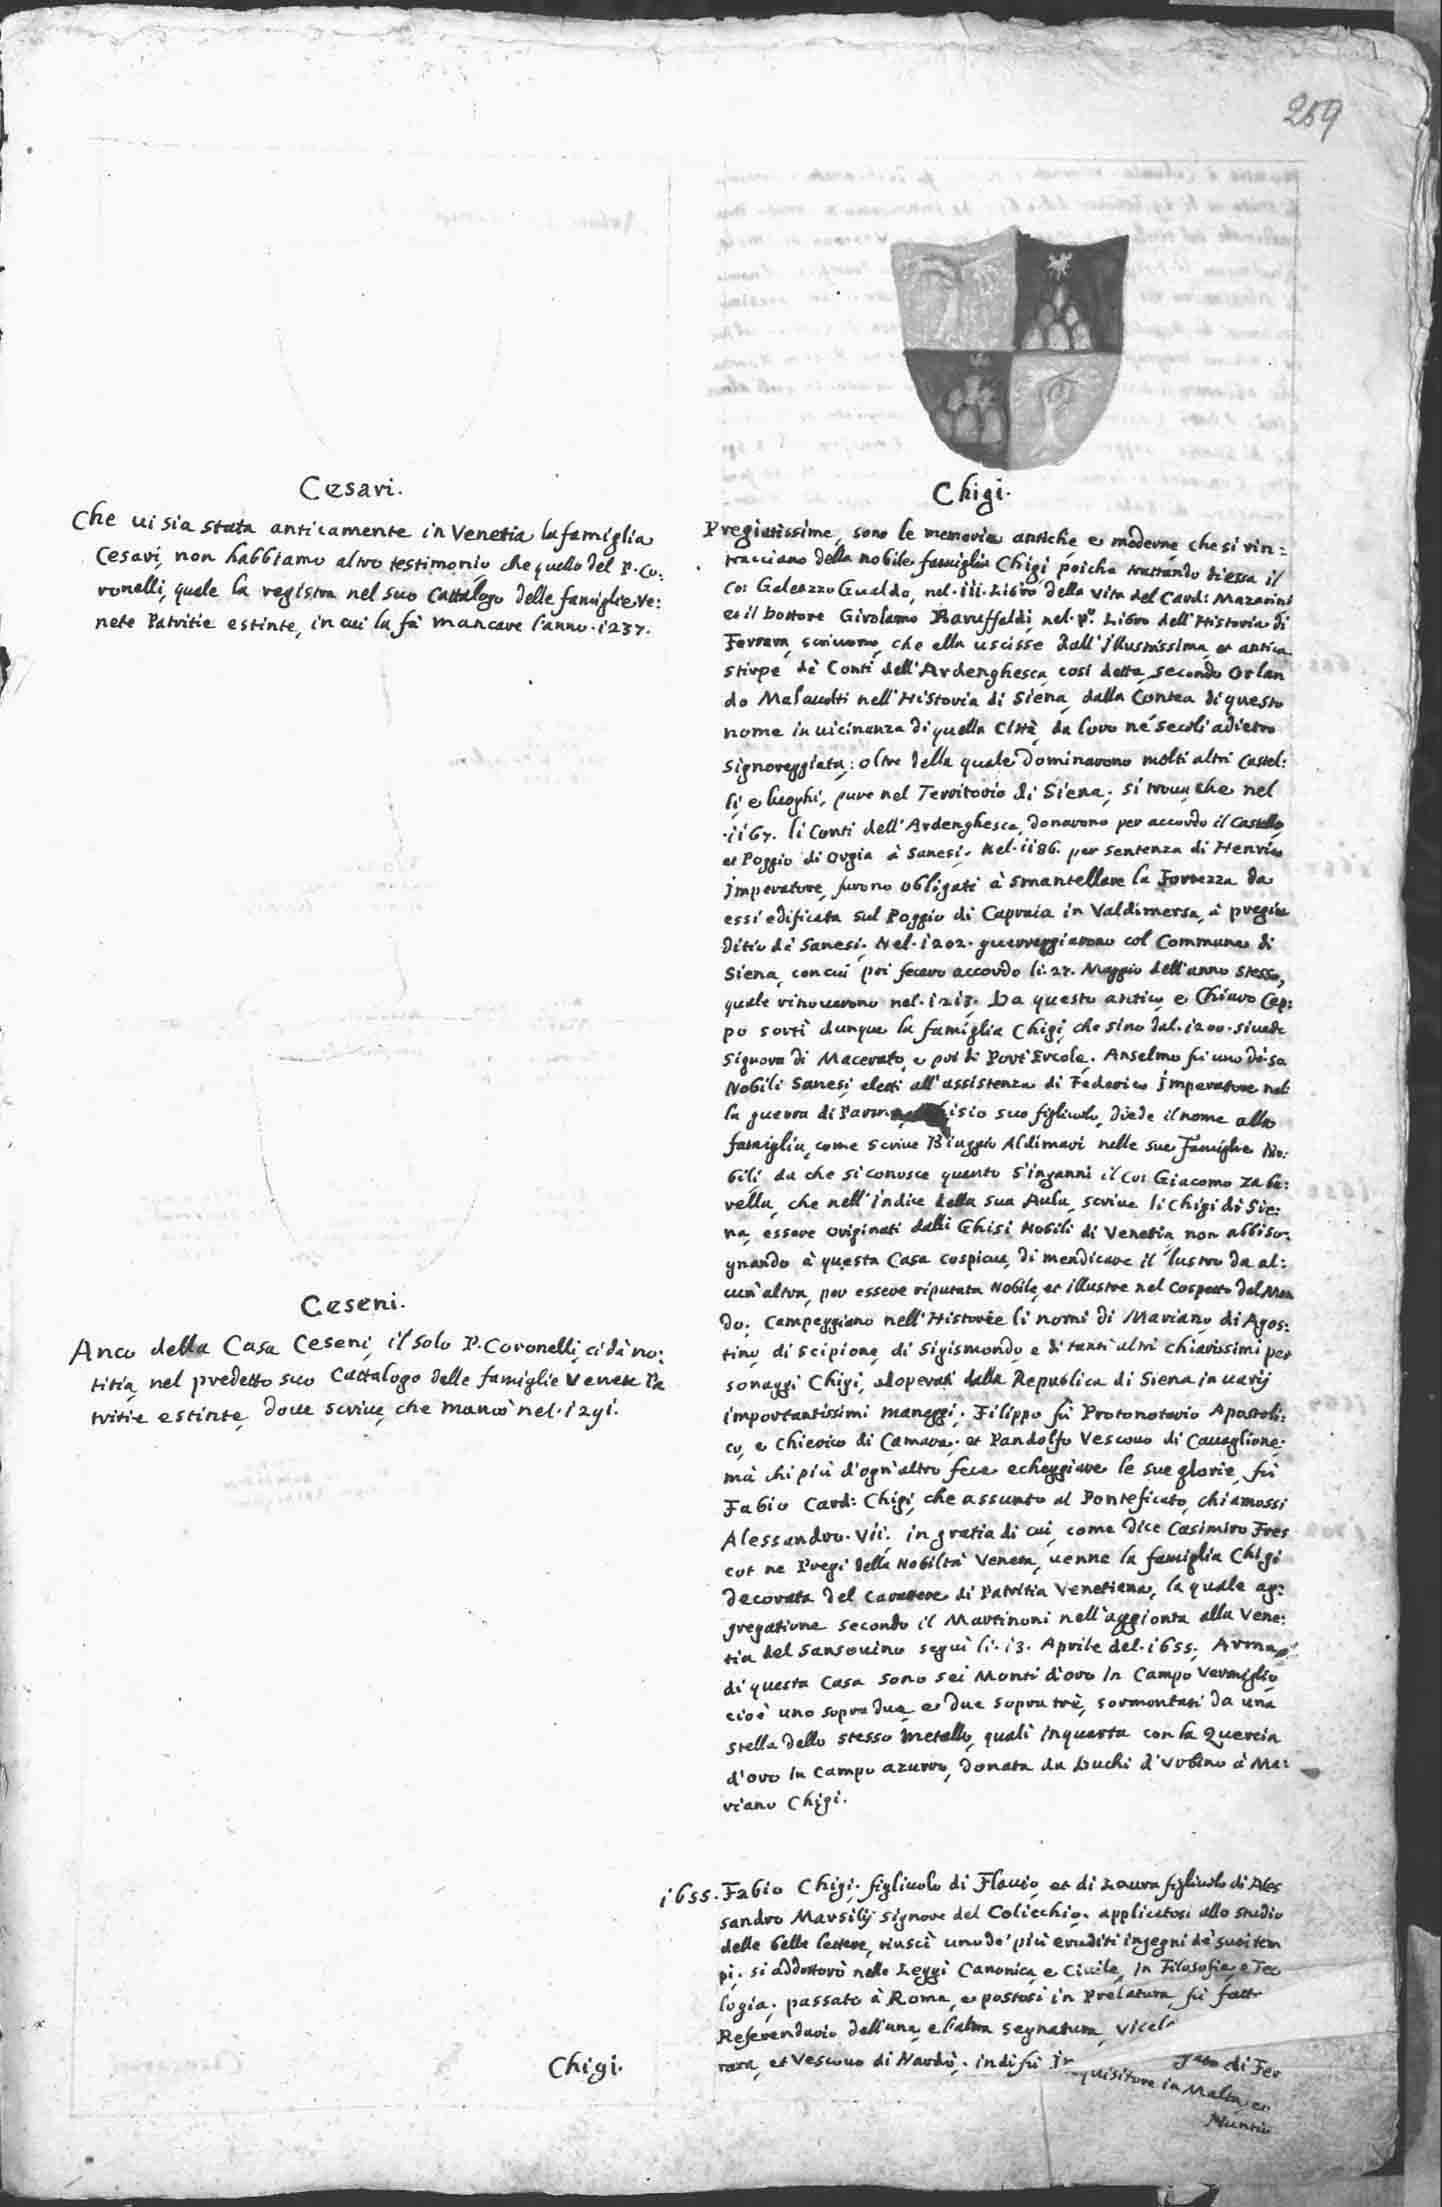 259
Cesari.
Che ui sia stata anticamente in Venetia la famiglia
Cesari, non habbiamo altro testimonio che quello del P. Co:
ronelli, quale la registra nel suo Cattalogo delle famiglie Ve:
nete Patritie estinte, in cui la fà mancare l'anno. 1237.
Ceseni.
Anco della Casa Ceseni, il solo P. Coronelli, ci dà no:
titia, nel predetto suo Cattalogo delle famiglie Venete Pa
tritie estinte, doue scriue, che mancò nel. 1291.
Chigi.
Chigi.
Pregiatissime, sono le memorie antiche e moderne che si rin:
tracciano della nobile famiglia Chigi poiche trattando di essa il
Co: Galeazzo Gualdo, nel. iii. Libro della Vita del Card: Mazarini
et il Dottore Girolamo Baruffaldi, nel. pº. Libro dell'Historia di
Ferrara, scriuono, che ella uscisse dall'Illustrissima, et antica
stirpe dè Conti dell'Ardenghesca, così detta, secondo Orlan
do Malauolti nell'Historia di Siena, dalla Contea di questo
nome in uicinanza di quella Città, da loro né secoli adietro
signoreggiata: oltre della quale dominarono molti altri Castel:
li, e luoghi, pure nel Territorio di Siena. si troua, che nel
.1167. li Conti dell'Ardenghesca, donarono per accordo il Castello,
et Poggio di Orgia à Sanesi. Nel. 1186. per sentenza di Henrico
Imperatore, furono obligati à smantellare la Fortezza da
essi edificata sul Poggio di Capraia in Valdimersa, à pregiu
ditio dè Sanesi. Nel. 1202. guerreggiarono col Commune di
Siena, con cui poi fecero accordo li. 27. Maggio dell'anno stesso,
quale rinouarono nel. 1213. Da questo antico, e Chiaro Cep:
po sortì dunque la famiglia Chigi, che sino dal. 1200. si uede
Signora di Macerato, e poi di Port'Ercole. Anselmo fu uno dè 
Nobili Sanesi, eletti all'assistenza di Federico Imperatore nel:
la guerra di Parma, suo figliuolo, diede il nome alla
famiglia, come scriue Biaggio Aldimari nelle sue Famiglie No:
bili da che si conosce quanto s'inganni il Co: Giacomo Zaba:
rella, che nell'Indice della sua Aula, scriue li Chigi di Sie:
na, essere originati dalli Ghisi Nobili di Venetia, non abbiso:
gnando à questa Casa cospicua, di mendicare il lustro da al:
cun'altra, per essere riputata Nobile, et illustre nel Cospetto del Mon
do. Campeggiano nell'Historie li nomi di Mariano, di Agos:
tino, di Scipione, di Sigismondo, e di tanti altri chiarissimi per
sonaggi Chigi, adoperati dalla Republica di Siena in uarij
importantissimi maneggi. Filippo fù Protonotario Apostoli:
co, e Chierico di Camara. et Pandolfo Vescouo di Cauaglione.
mà chi più d'ogn'altro fece echeggiare le sue glorie, fù
Fabio Card: Chigi, che assunto al Ponteficato, chiamossi
Alessandro. VII. in gratia di cui, come dice Casimiro Fres
cot ne Pregi della Nobiltà Veneta, uenne la famiglia Chigi
decorata del Carattere di Patritia Venetiana, la quale ag:
gregatione secondo il Martinoni nell'aggionta alla Vene:
tia del Sansouino seguì li. 13. Aprile del. 1655. Arma
di questa Casa sono sei Monti d'oro in Campo Vermiglio,
cioè uno sopra due, e due sopra trè, sormontati da una
stella dello stesso metallo, quali inquarta con la Quercia
d'oro in Campo azurro, donata da Duchi d'Vrbino à Ma:
riano Chigi.
1655. Fabio Chigi. figliuolo di Flauio, et di Laura figliuola di Ales
sandro Marsilij Signore del Colicchio. applicatosi allo studio
delle belle lettere, riuscì uno de' più eruditi ingegni dè suoi tem
pi. si addottorò nelle Leggi Canonica, e Ciuile, in Filosofia, e Teo
logia. passato à Roma, e postosi in Prelatura, fù fatto
Referendario dell'una, e l'altra Segnatura, Vicele
gato di Fer
rara, et Vescouo di Nardò. indi fù In
quisitore in Malta, et
Nuntio